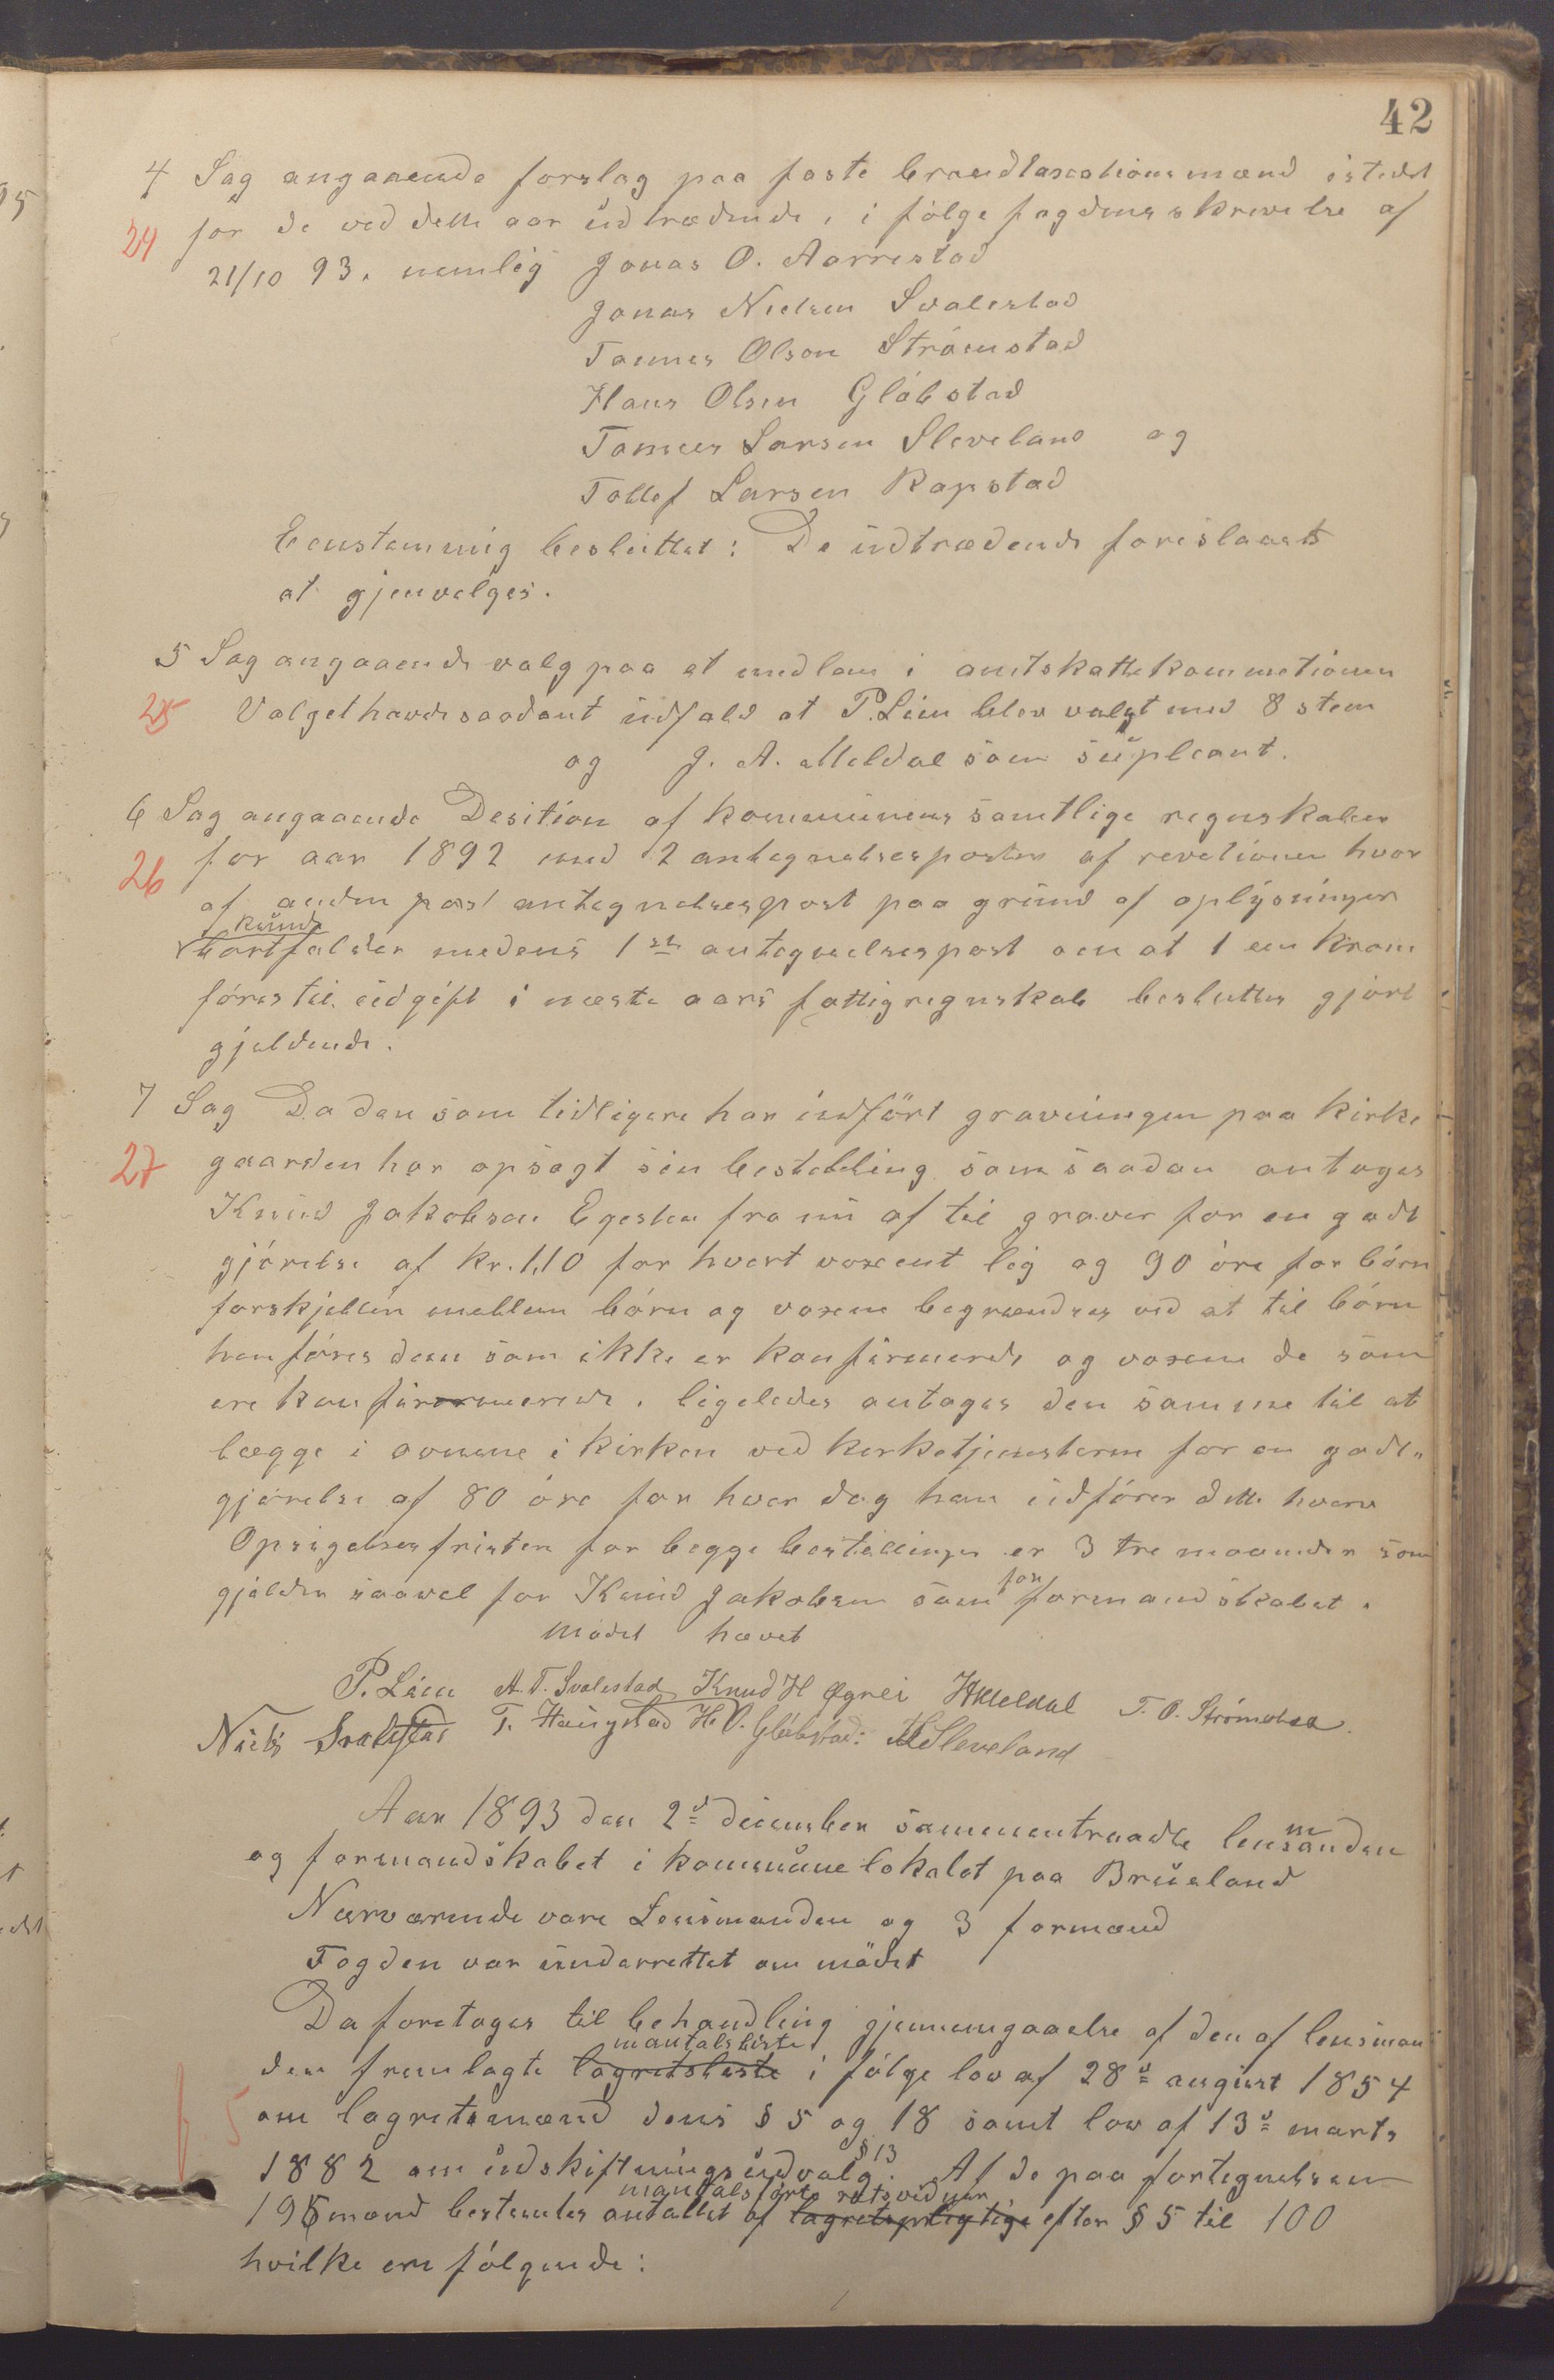 42
4 Sag angaaende forslag paa faste brandtaxationsmænd istedet
24 for de ved dette aar udtrædende, i følge fogdens skrivelse af
21/10 93. nemlig Jonas O. Aarrestad
Jonas Nielsen Svalestad
Tønnes Olson Strømstad
Hans Olsen Gløbstad
Tønnes Larsen Sleveland og
Tollef Larsen Rapstad
Eenstemmig besluttet: De udtrædende foreslaaets
at gjenvelges.
5 Sag angaaende valg paa et medlem i amtskattekommetionen
25 Valget havde saadant udfald at P. Lien blev valgt med 8 stem
og J. A. Meldal som supleant.
6 Sag angaaende Desition af kommunens samtlige regnskaber
26 for aar 1892 med 2 antegnelsesposter af revetionen hvor
af anden post antegnelsespost paa grund af oplysninger
kunde
bortfalder medens 1ste antegnelsespost om at 1 een krone
føres til udgift i næste aars fattigregnskab besluttes gjort
gjeldende.
7 Sag Da den som tidligere har udført gravningen paa kirke
27 gaarden har opsagt sin bestilling som saadan antoges
Knud Jakobsen Egesten fra nu af til graver for en godt
gjørelse af kr. 1,10 for hvert voxent lig og 90 øre for børn
forskjellen mellem børn og voxene begrændses ved at til børn
henføres dem som ikke er konfirmerede og voxene de som
ere konfirormerede. ligeledes antages den samme til at
lægge i ovnene i kirken ved kirketjenesterne for en godt"
gjørelse af 80 øre for hver dag han udfører dette hverv
Opsigelsesfristen for begge bestillinger er 3 tre maaneder som
for
gjelder saavel for Knud Jakobsen som formandskabet.
mødet hævet
P. Lien A. T. Svalestad Knud H Øgrei J A Meldal T. O. Strømstad.
Niels Svalestad T. Haugstad H. O. Gløbstad: T L Sleveland
Aar 1893 den 2d december sammentraadte lensmanden
og formandskabet i kommune lokalet paa Brueland
Nærværende vare Lensmanden og 3 formænd
Fogden var underrettet om mødet
Da foretoges til behandling gjennemgaaelse af den af lensman
mantalsliste
den fremlagte lagretsliste i følge lov af 28d august 1854
5 om lagretsmænd dens § 5 og 18 samt lov af 13d marts
§ 13
1882 om udskiftningsudvalg. Af de paa fortegnelsen
mantalsførte retsvidner
195 mænd bestemtes antallet af lagretspligtige efter § 5 til 100
hvilke ere følgende: